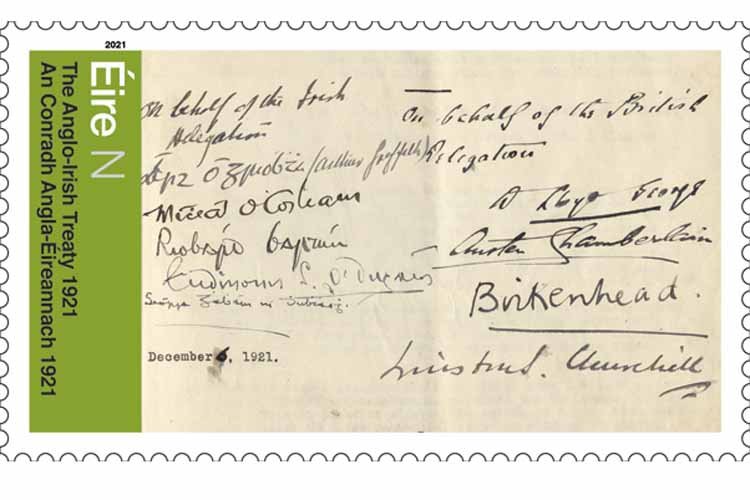 2021
Éire N
The Anglo-Irish Treaty 1921
An Conradh Angla-Éireannach 1921
On behalf of the Irish
delegation
Art Ó Gríobhtha (Arthur Griffith)
Micheál O Coileain
Riobárd Bartún
S. Ó
December 6, 1921.
On behalf of the British
Delegation
D Lloyd George
Austen Chamberlain
Birkenhead.
Winston S. Churchill